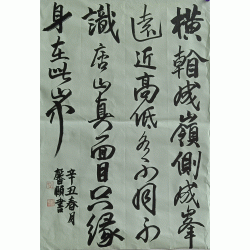 橫看成嶺側成峯
遠近高低各不同不
識庐山真面目只緣
身在此山中
辛丑春月
書